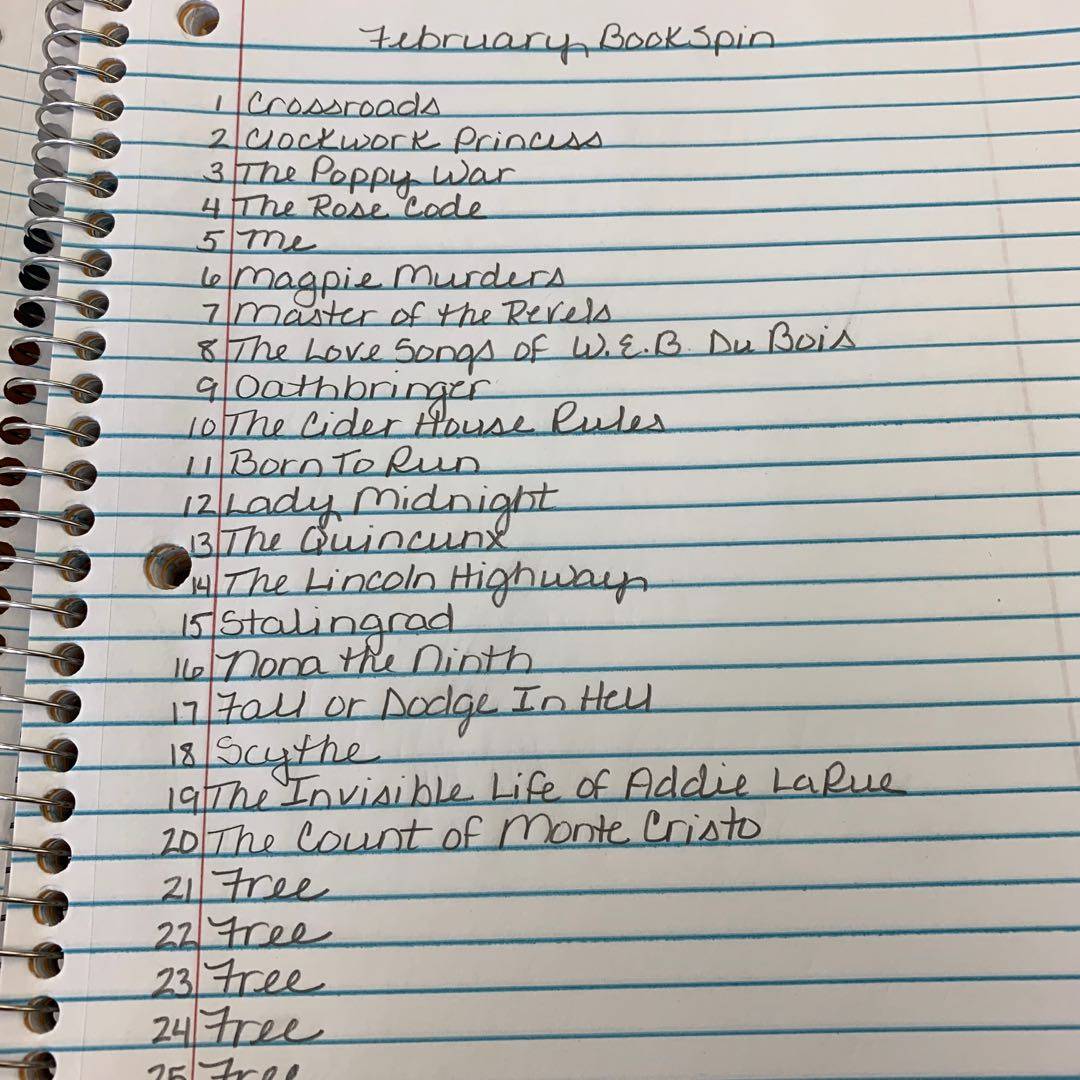 February BookSpin
1 Crossroads
2 Clockwork Princess
3 The Poppy War
4 The Rose Code
5 Me
6 Magpie Murders
7 Master of the Revels
8 The Love Songs of W.E.B. Du Bois
9 Oathbringer
10 The Cider House Rules
11 Born To Run
12 Lady Midnight
13 The Quincunx
14 The Lincoln Highway
15 Stalingrad
16 Nona the Ninth
17 Fall or Dodge In Hell
18 Scythe
19 The Invisible Life of Addie LaRue
20 The Count of Monte Cristo
21 Free
22 Free
23 Free
24 Free
25 Free